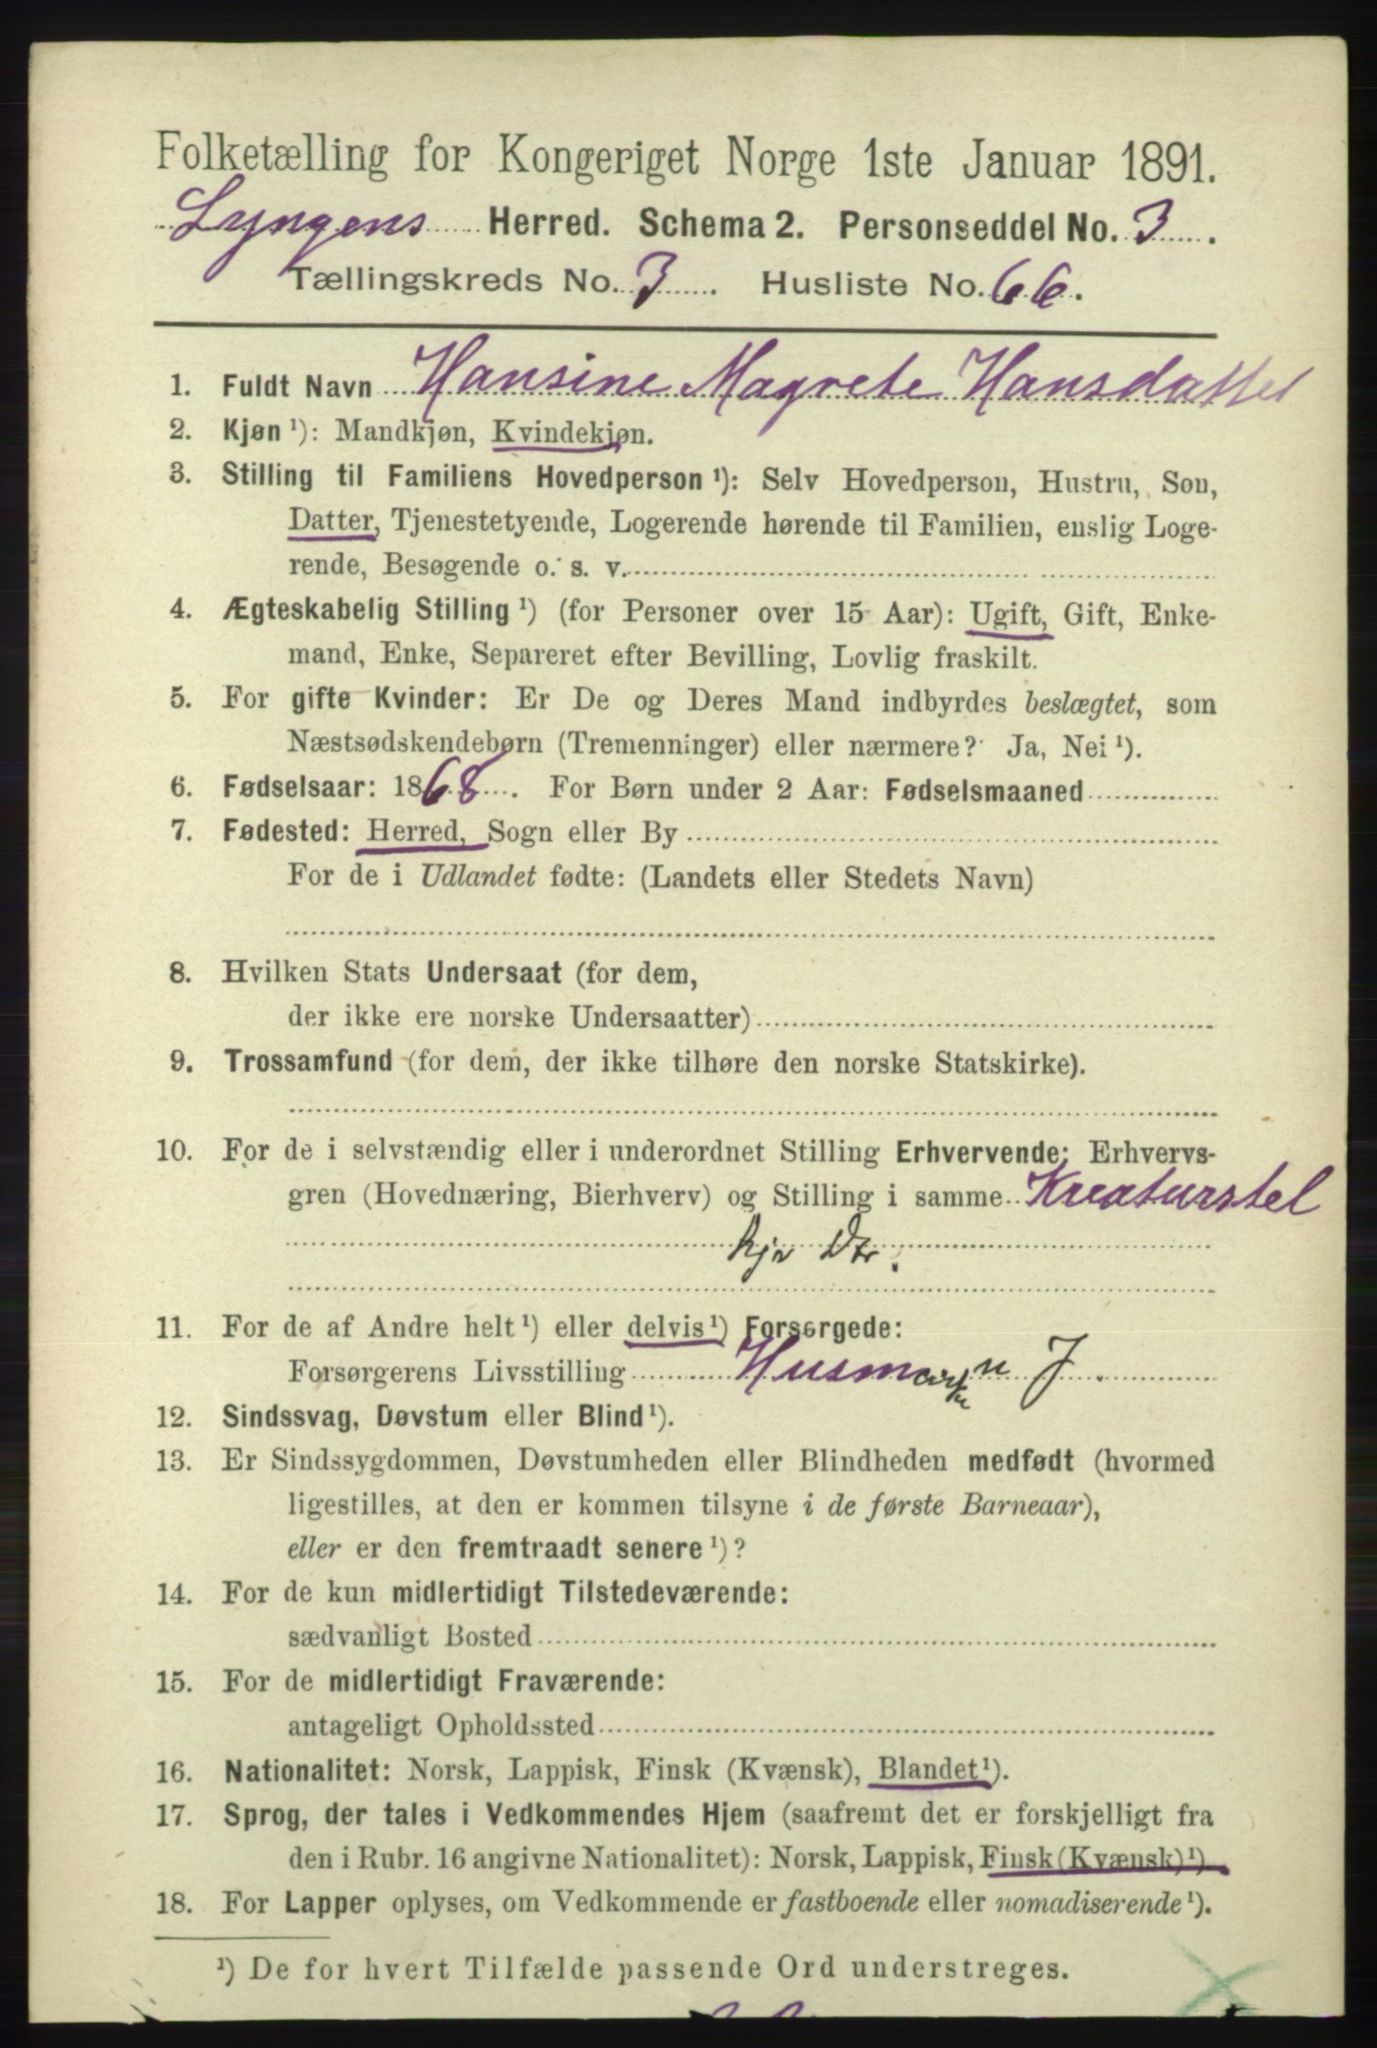 Folketælling for Kongeriget Norge 1ste Januar 1891.
Lyngens Herred. Schema 2. Personseddel No. 3.
Tællingskreds No. 3. Husliste No. 66.
1. Fuldt Navn Hansine Magrete Hansdatter
2. Kjøn ¹): Mandkjøn, Kvindekjøn.
3. Stilling til Familiens Hovedperson ¹): Selv Hovedperson, Hustru, Søn,
Datter, Tjenestetyende, Logerende hørende til Familien, enslig Loge-
rende, Besøgende o. s. v.
4. Ægteskabelig Stilling ¹) (for Personer over 15 Aar): Ugift, Gift, Enke-
mand, Enke, Separeret efter Bevilling, Lovlig fraskilt.
5. For gifte Kvinder: Er De og Deres Mand indbyrdes beslægtet, som
Næstsødskendebørn (Tremenninger) eller nærmere? Ja, Nei ¹).
6. Fødselsaar: 1868. For Børn under 2 Aar: Fødselsmaaned
7. Fødested: Herred, Sogn eller By
For de i Udlandet fødte: (Landets eller Stedets Navn)
8. Hvilken Stats Undersaat (for dem,
der ikke ere norske Undersaatter)
9. Trossamfund (for dem, der ikke tilhøre den norske Statskirke).
10. For de i selvstændig eller i underordnet Stilling Erhvervende: Erhvervs-
gren (Hovednæring, Bierhverv) og Stilling i samme Kreaturstel
hjv Dtr.
11. For de af Andre helt ¹) eller delvis ¹) Forsørgede:
Forsørgerens Livsstilling Husm J.
12. Sindssvag, Døvstum eller Blind ¹).
13. Er Sindssygdommen, Døvstumheden eller Blindheden medfødt (hvormed
ligestilles, at den er kommen tilsyne i de første Barneaar),
eller er den fremtraadt senere ¹)?
14. For de kun midlertidigt Tilstedeværende:
sædvanligt Bosted
15. For de midlertidigt Fraværende:
antageligt Opholdssted
16. Nationalitet: Norsk, Lappisk, Finsk (Kvænsk), Blandet ¹).
17. Sprog, der tales i Vedkommendes Hjem (saafremt det er forskjelligt fra
den i Rubr. 16 angivne Nationalitet): Norsk, Lappisk, Finsk (Kvænsk) ¹).
18. For Lapper oplyses, om Vedkommende er fastboende eller nomadiserende ¹).
¹) De for hvert Tilfælde passende Ord understreges.